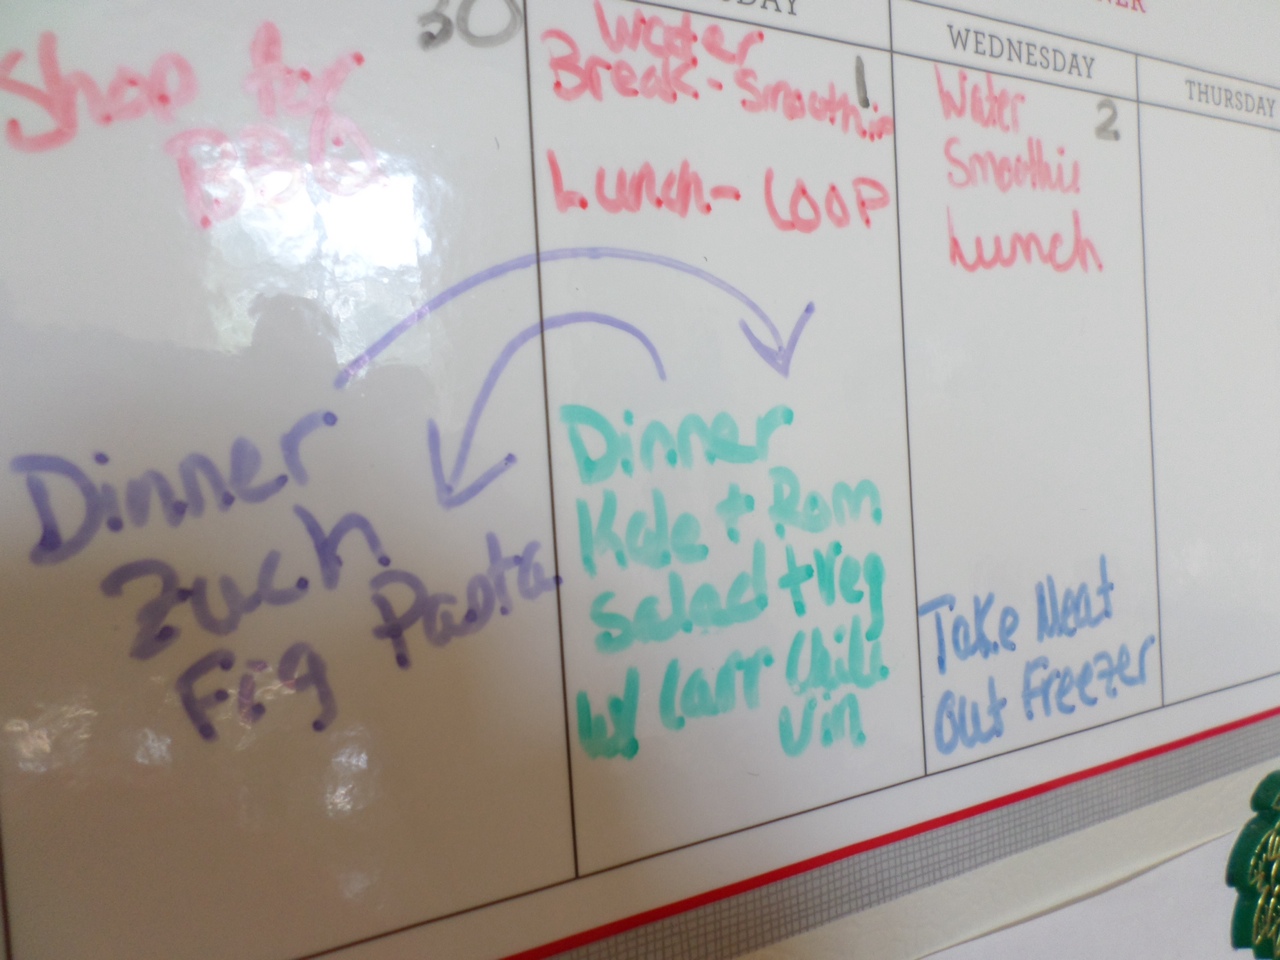 DAY
NER
WEDNESDAY
THURSDAY
30
Shop for
BBQ
Water
1
Break - Smoothie
Lunch - LOOP
2
Water
Smoothie
Lunch
Dinner
Zuch
Pasta
Fig
Dinner
Kale + Rom
Salad + Veg
W/ Carr Chili
Vin
Take Meat
Out Freezer